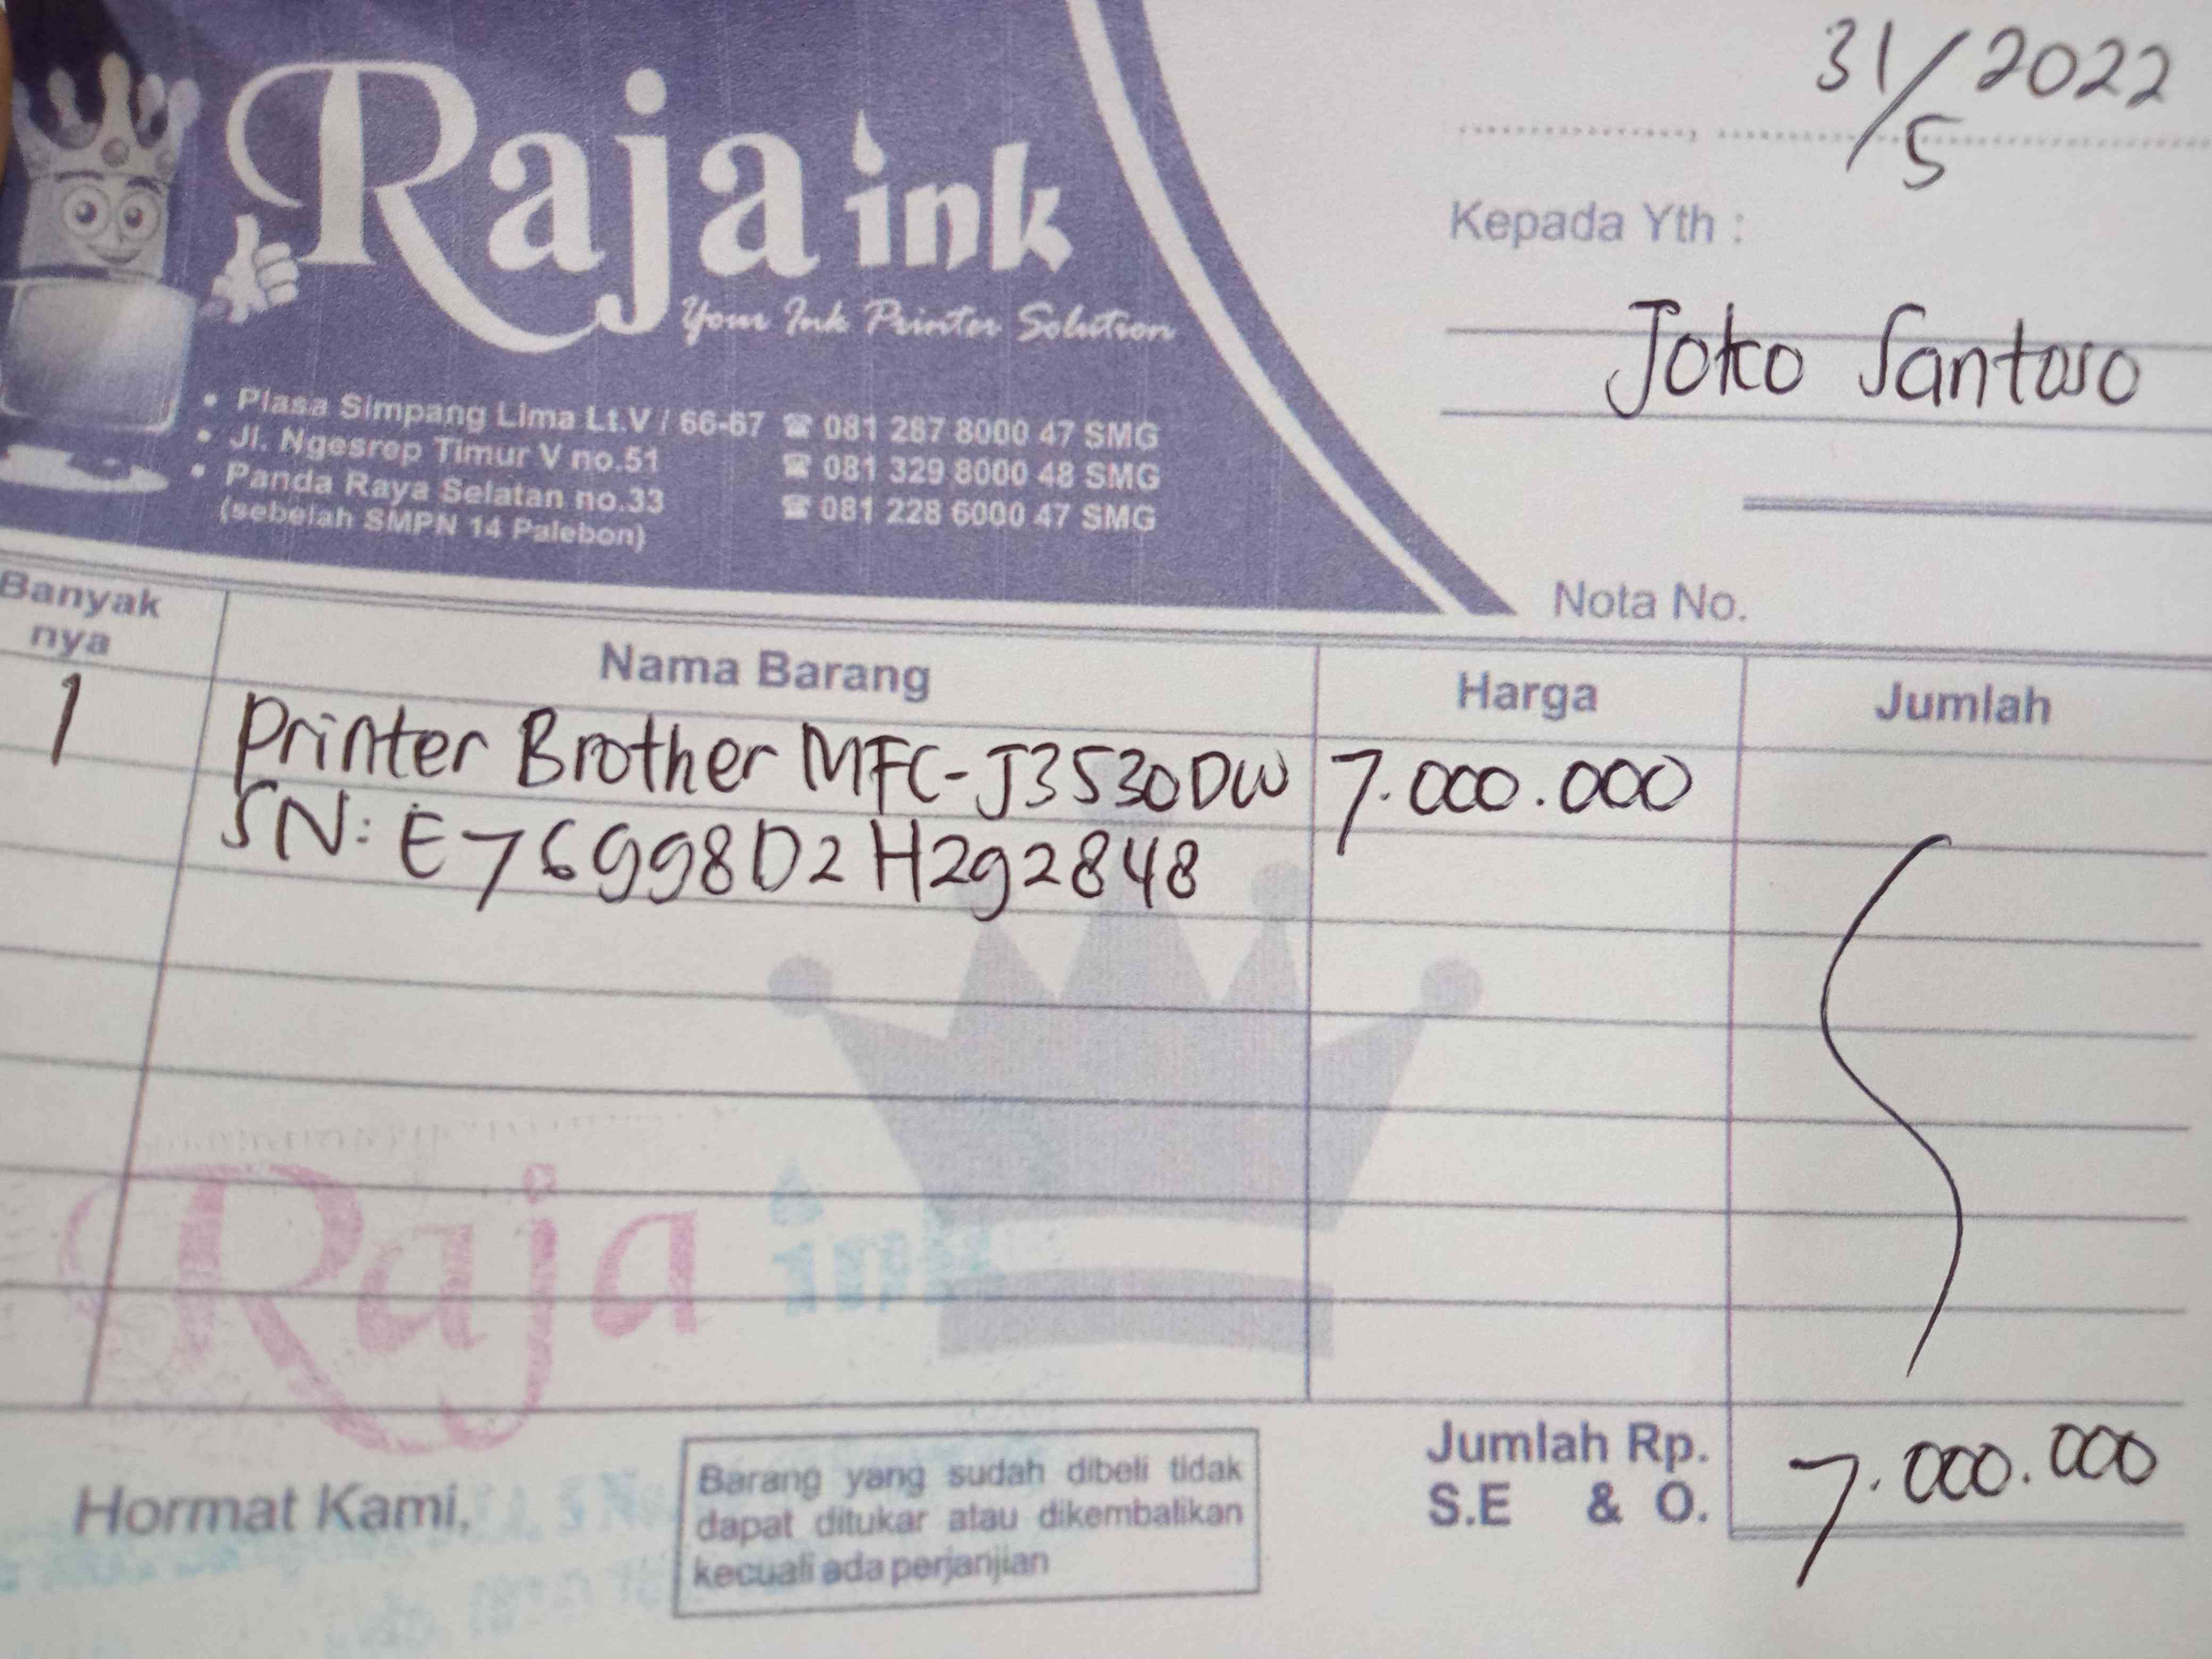 Raja ink
Your Ink Printer Solution
• Plasa Simpang Lima Lt.V / 66-67 ☎ 081 287 8000 47 SMG
• Jl. Ngesrep Timur V no.51 ☎ 081 329 8000 48 SMG
• Panda Raya Selatan no.33 ☎ 081 228 6000 47 SMG
(sebelah SMPN 14 Palebon)
31/5 2022
Kepada Yth :
Joko Santoso
Nota No.
Banyak nya Nama Barang Harga Jumlah
1 Printer Brother MFC-J3530DW 7.000.000
SN: E76998D2H292848
Raja ink
Hormat Kami,
Barang yang sudah dibeli tidak
dapat ditukar atau dikembalikan
kecuali ada perjanjian
Jumlah Rp. 7.000.000
S.E & O.